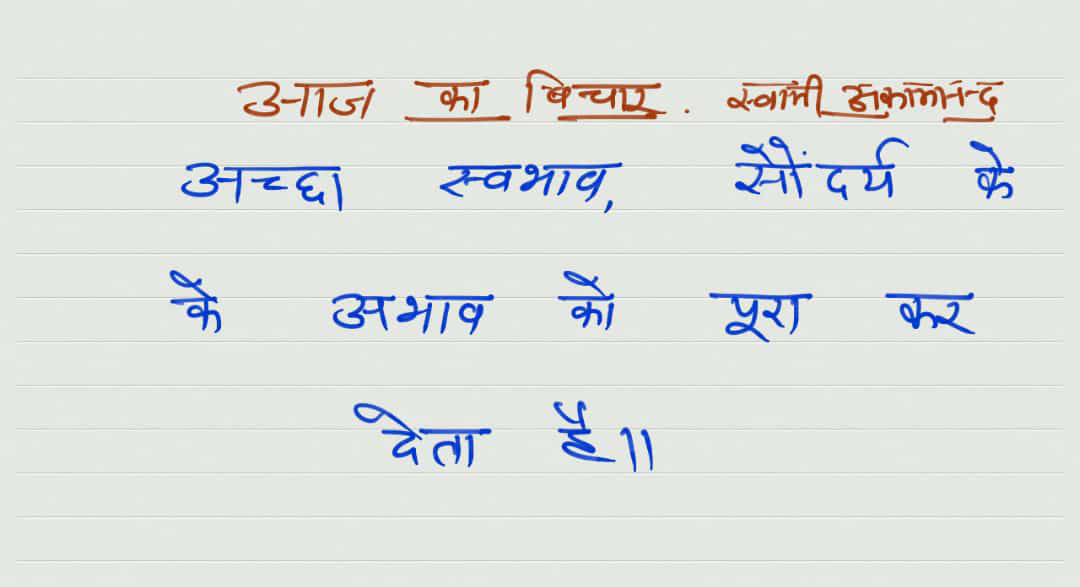 आज का बिचार. स्वामी अकामानन्द
अच्छा स्वभाव, सौंदर्य के
के अभाव को पूरा कर
देता है॥